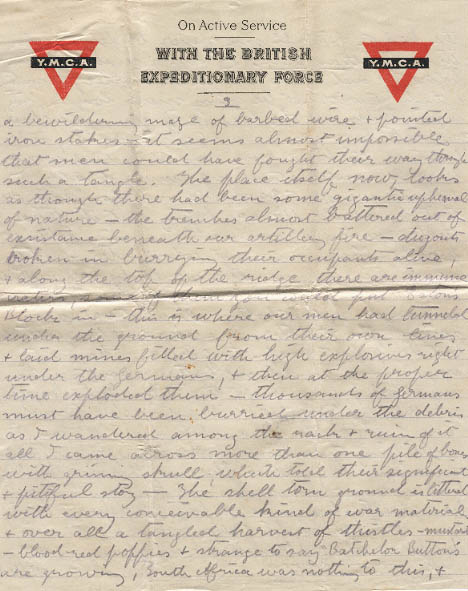 On Active Service
Y.M.C.A.
WITH THE BRITISH
EXPEDITIONARY FORCE
Y.M.C.A.
a bewildering maze of barbed wire & pointed
iron stakes – it seems almost impossible
that men could have fought their way through
such a tangle. The place itself now looks
as though there had been some gigantic upheaval
of nature – the trenches almost battered out of
existance beneath our artillery fire – dugouts
broken in burrying their occupants alive,
& along the top of the ridge there are immense
some of them you could put
Blocks in – this is where our men had tunneled
under the ground from their own lines
& laid mines filled with high explosives right
under the Germans, & then at the proper
time exploded them – thousands of Germans
must have been burried under the debris
as I wandered among the & ruin of it
all I came across more than one pile of bones
with grim skull which told their significant
& pitiful story – The shell torn ground is littered
with every conceivable kind of war material
& over all a tangled harvest of thistles – mustard
– blood red poppies & strange to say Batchelor Buttons
are growing, South Africa was nothing to this, &